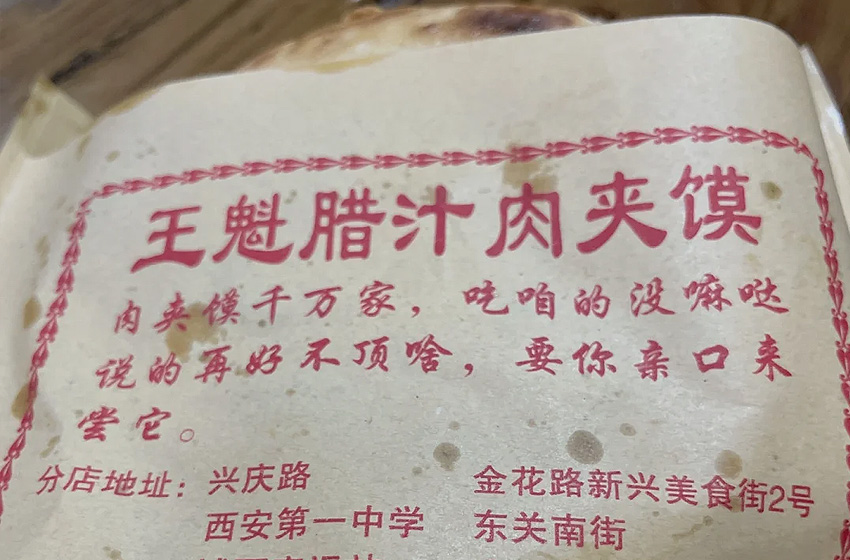 王魁腊汁肉夹馍
肉夹馍千万家，吃咱的没嘛哒
说的再好不顶啥，要你亲口来
尝它。
分店地址：兴庆路 金花路新兴美食街2号
西安第一中学 东关南街